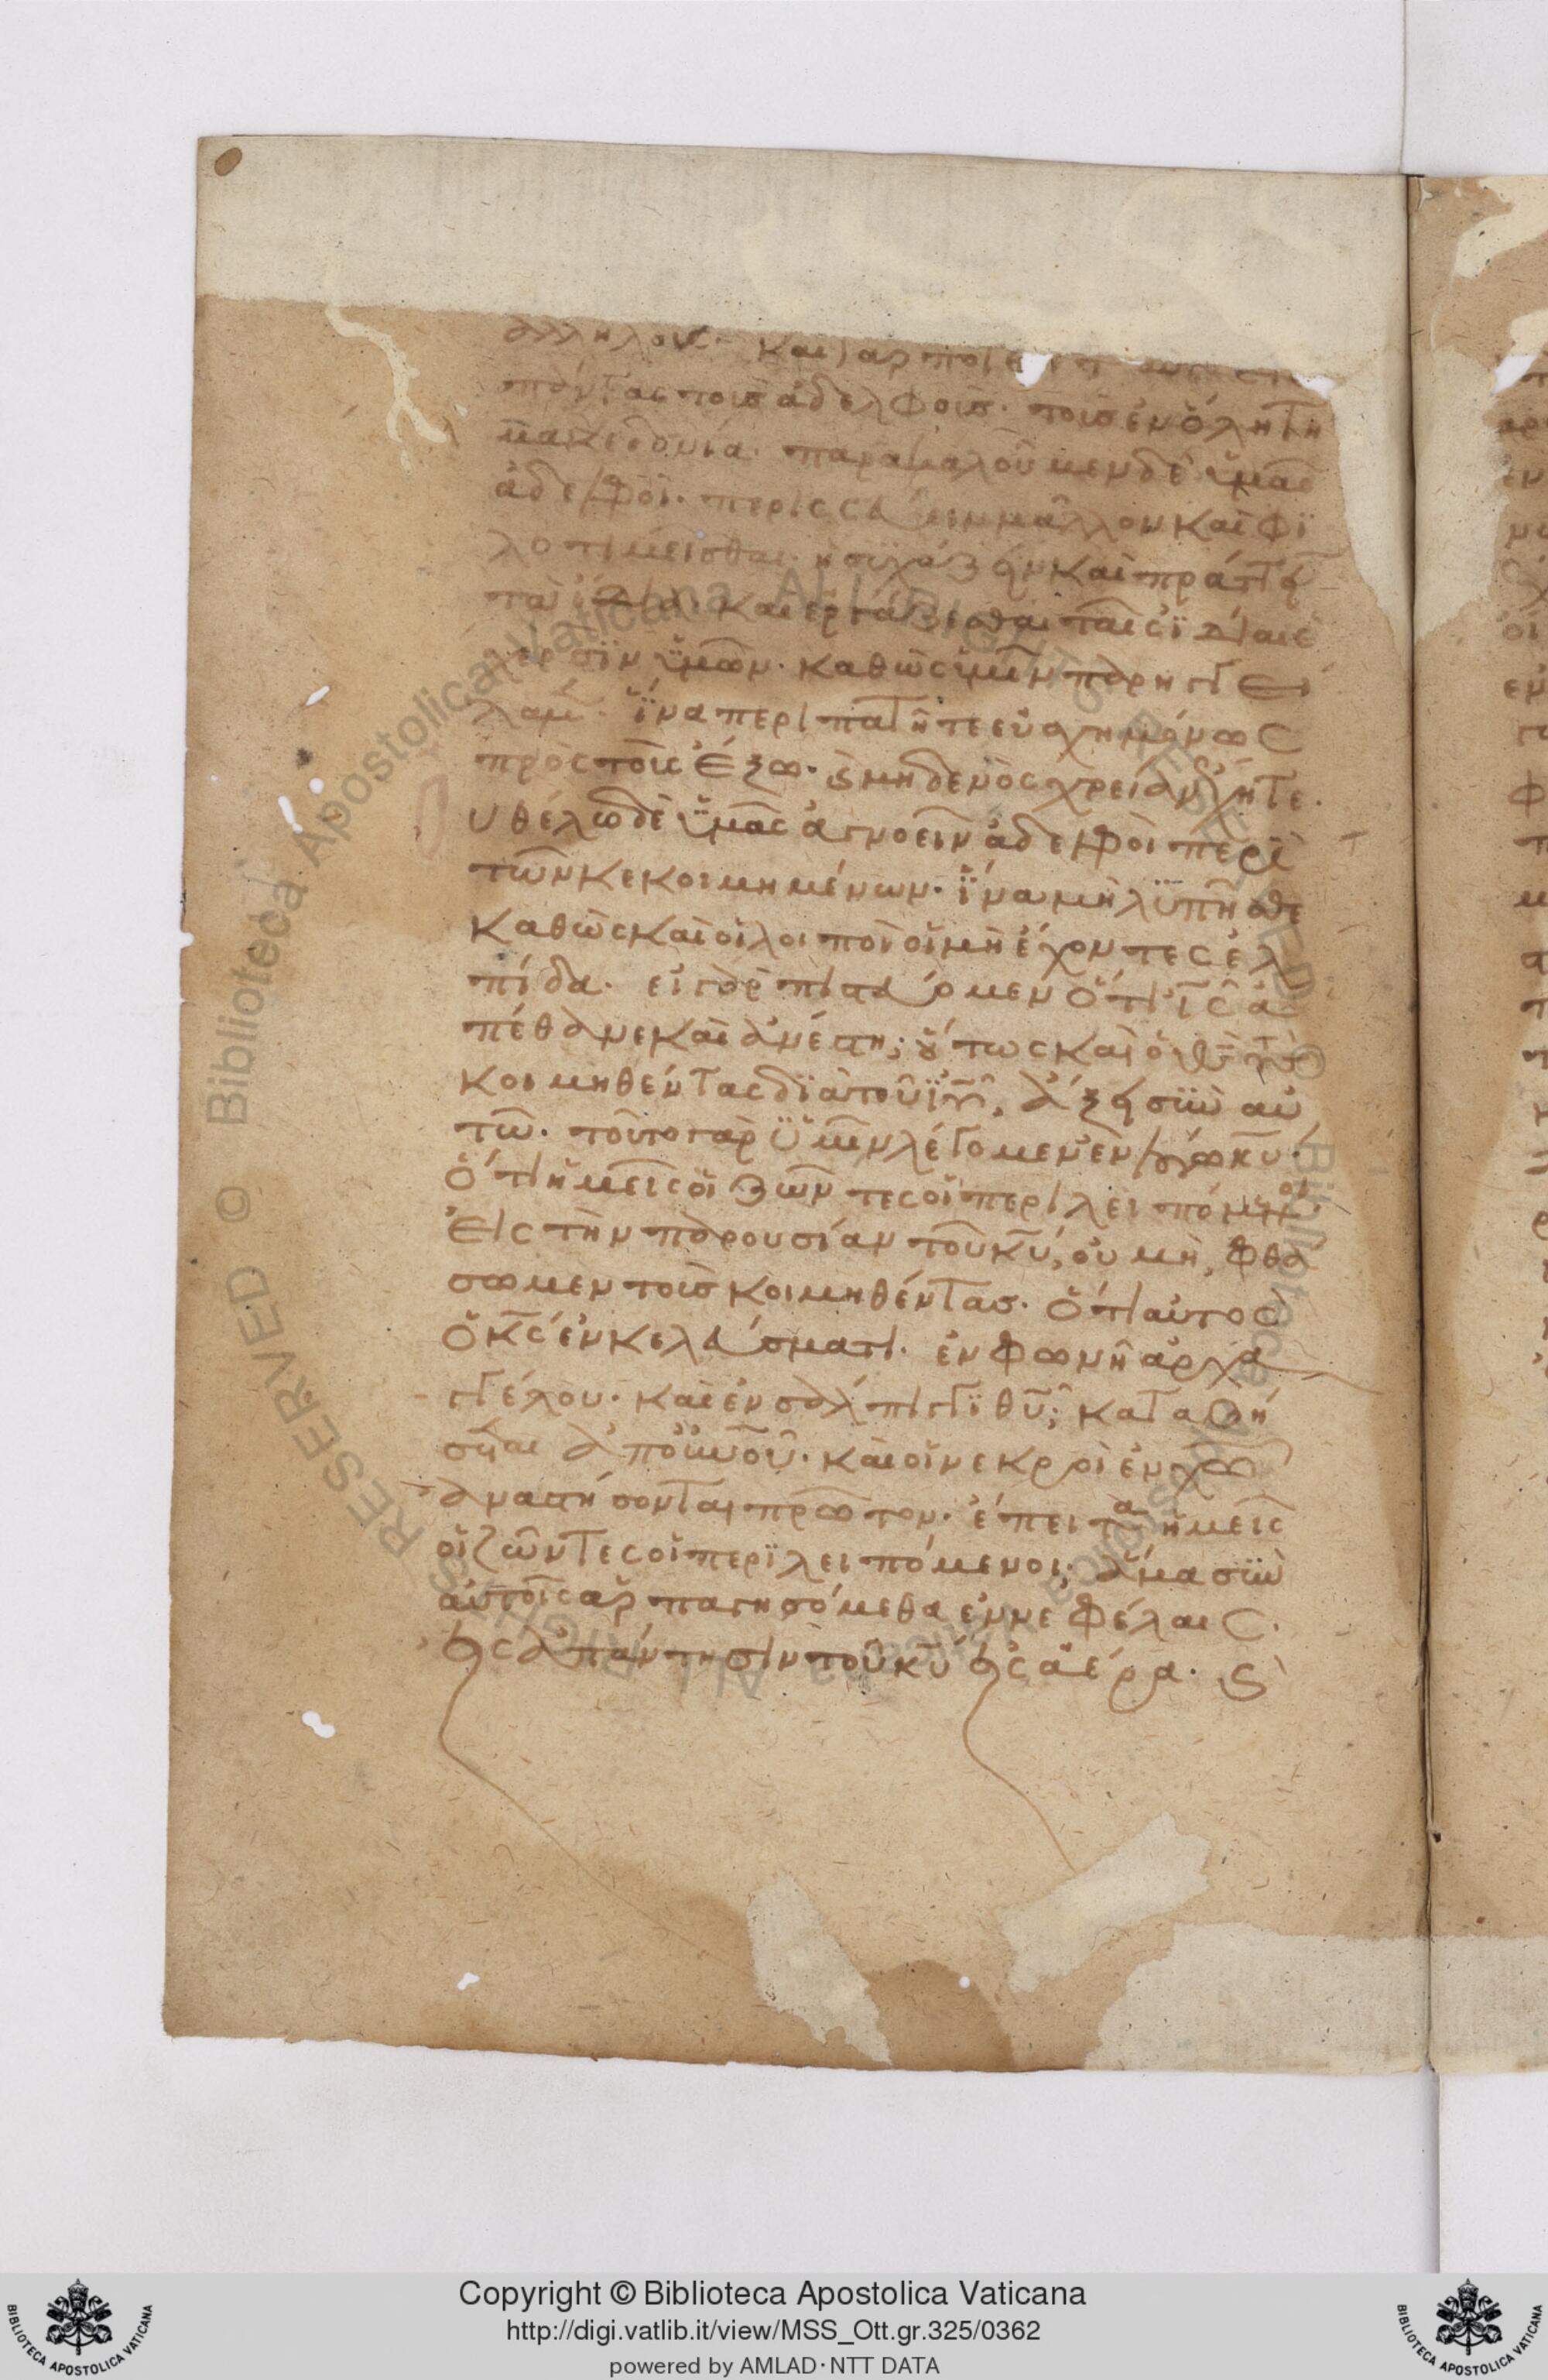 ἀλλήλους· καὶ γὰρ ποιεῖτε
πάντας τοὺς ἀδελφοὺς· τοὺς ἐν ὅλη τῆ
μακεδονία· παρακαλοῦμεν δὲ ὑμᾶς
ἀδελφοὶ· περισσεύειν μᾶλλον καὶ φι
λοτιμεῖσθαι ἡσυχάζειν καὶ πράττειν
τὰ ἴδια· καὶ ἐργάζεσθαι ταῖς ἰδίαις
χερσὶν ὑμῶν· καθὼς ὑμῖν παρηγγεί
λαμεν· ἵνα περιπατῆτε εὐσχημόνως
πρὸς τοὺς ἔξω· ϗ μηδενὸς χρείαν ἔχητε·
υ θέλω δὲ ὑμᾶς ἀγνοεῖν ἀδελφοὶ περὶ
τῶν κεκοιμημένων· ἵνα μὴ λυπῆσθε
καθὼς καὶ οἱ λοιποὶ οἱ μὴ ἔχοντες ἐλ
πίδα· εἰ γὰρ πιστεύομεν ὅτι ι̅ς̅ ἀ
πέθανε καὶ ἀνέστη· οὕτως καὶ ὁ θ̅ς̅ τοὺς
κοιμηθέντας διὰ τοῦ ι̅υ̅, ἄξει σὺν αὐ
τῶ· τοῦτο γὰρ ὑμῖν λέγομεν ἐν λόγω κ̅υ̅·
ὅτι ἡμεῖς οἱ ζῶντες οἱ περιλειπόμενοι
εἰς τὴν παρουσίαν τοῦ κ̅υ̅, οὐ μὴ, φθά
σωμεν τοὺς κοιμηθέντας· ὅτι αὐτὸς
ὁ κ̅ς̅ ἐν κελεύσματι· ἐν φωνῆ ἀρχα
γγέλου· καὶ ἐν σάλπιγγι θ̅υ̅· καταβή
σεται ἀπ' οὐ̅νοῦ· καὶ οἱ νεκροὶ ἐν χ̅ω̅
ἀναστήσονται πρῶτον· ἔπειτα ἡμεῖς
οἱ ζῶντες οἱ περιλειπόμενοι· ἅμα σὺν
αὐτοῖς ἁρπαγησόμεθα ἐν νεφέλαις·
εἰς ἀπάντησιν τοῦ κ̅υ̅ εἰς ἀέρα· ϗ
Copyright © Biblioteca Apostolica Vaticana
http://digi.vatlib.it/view/MSS_Ott.gr.325/0362
powered by AMLAD·NTT DATA